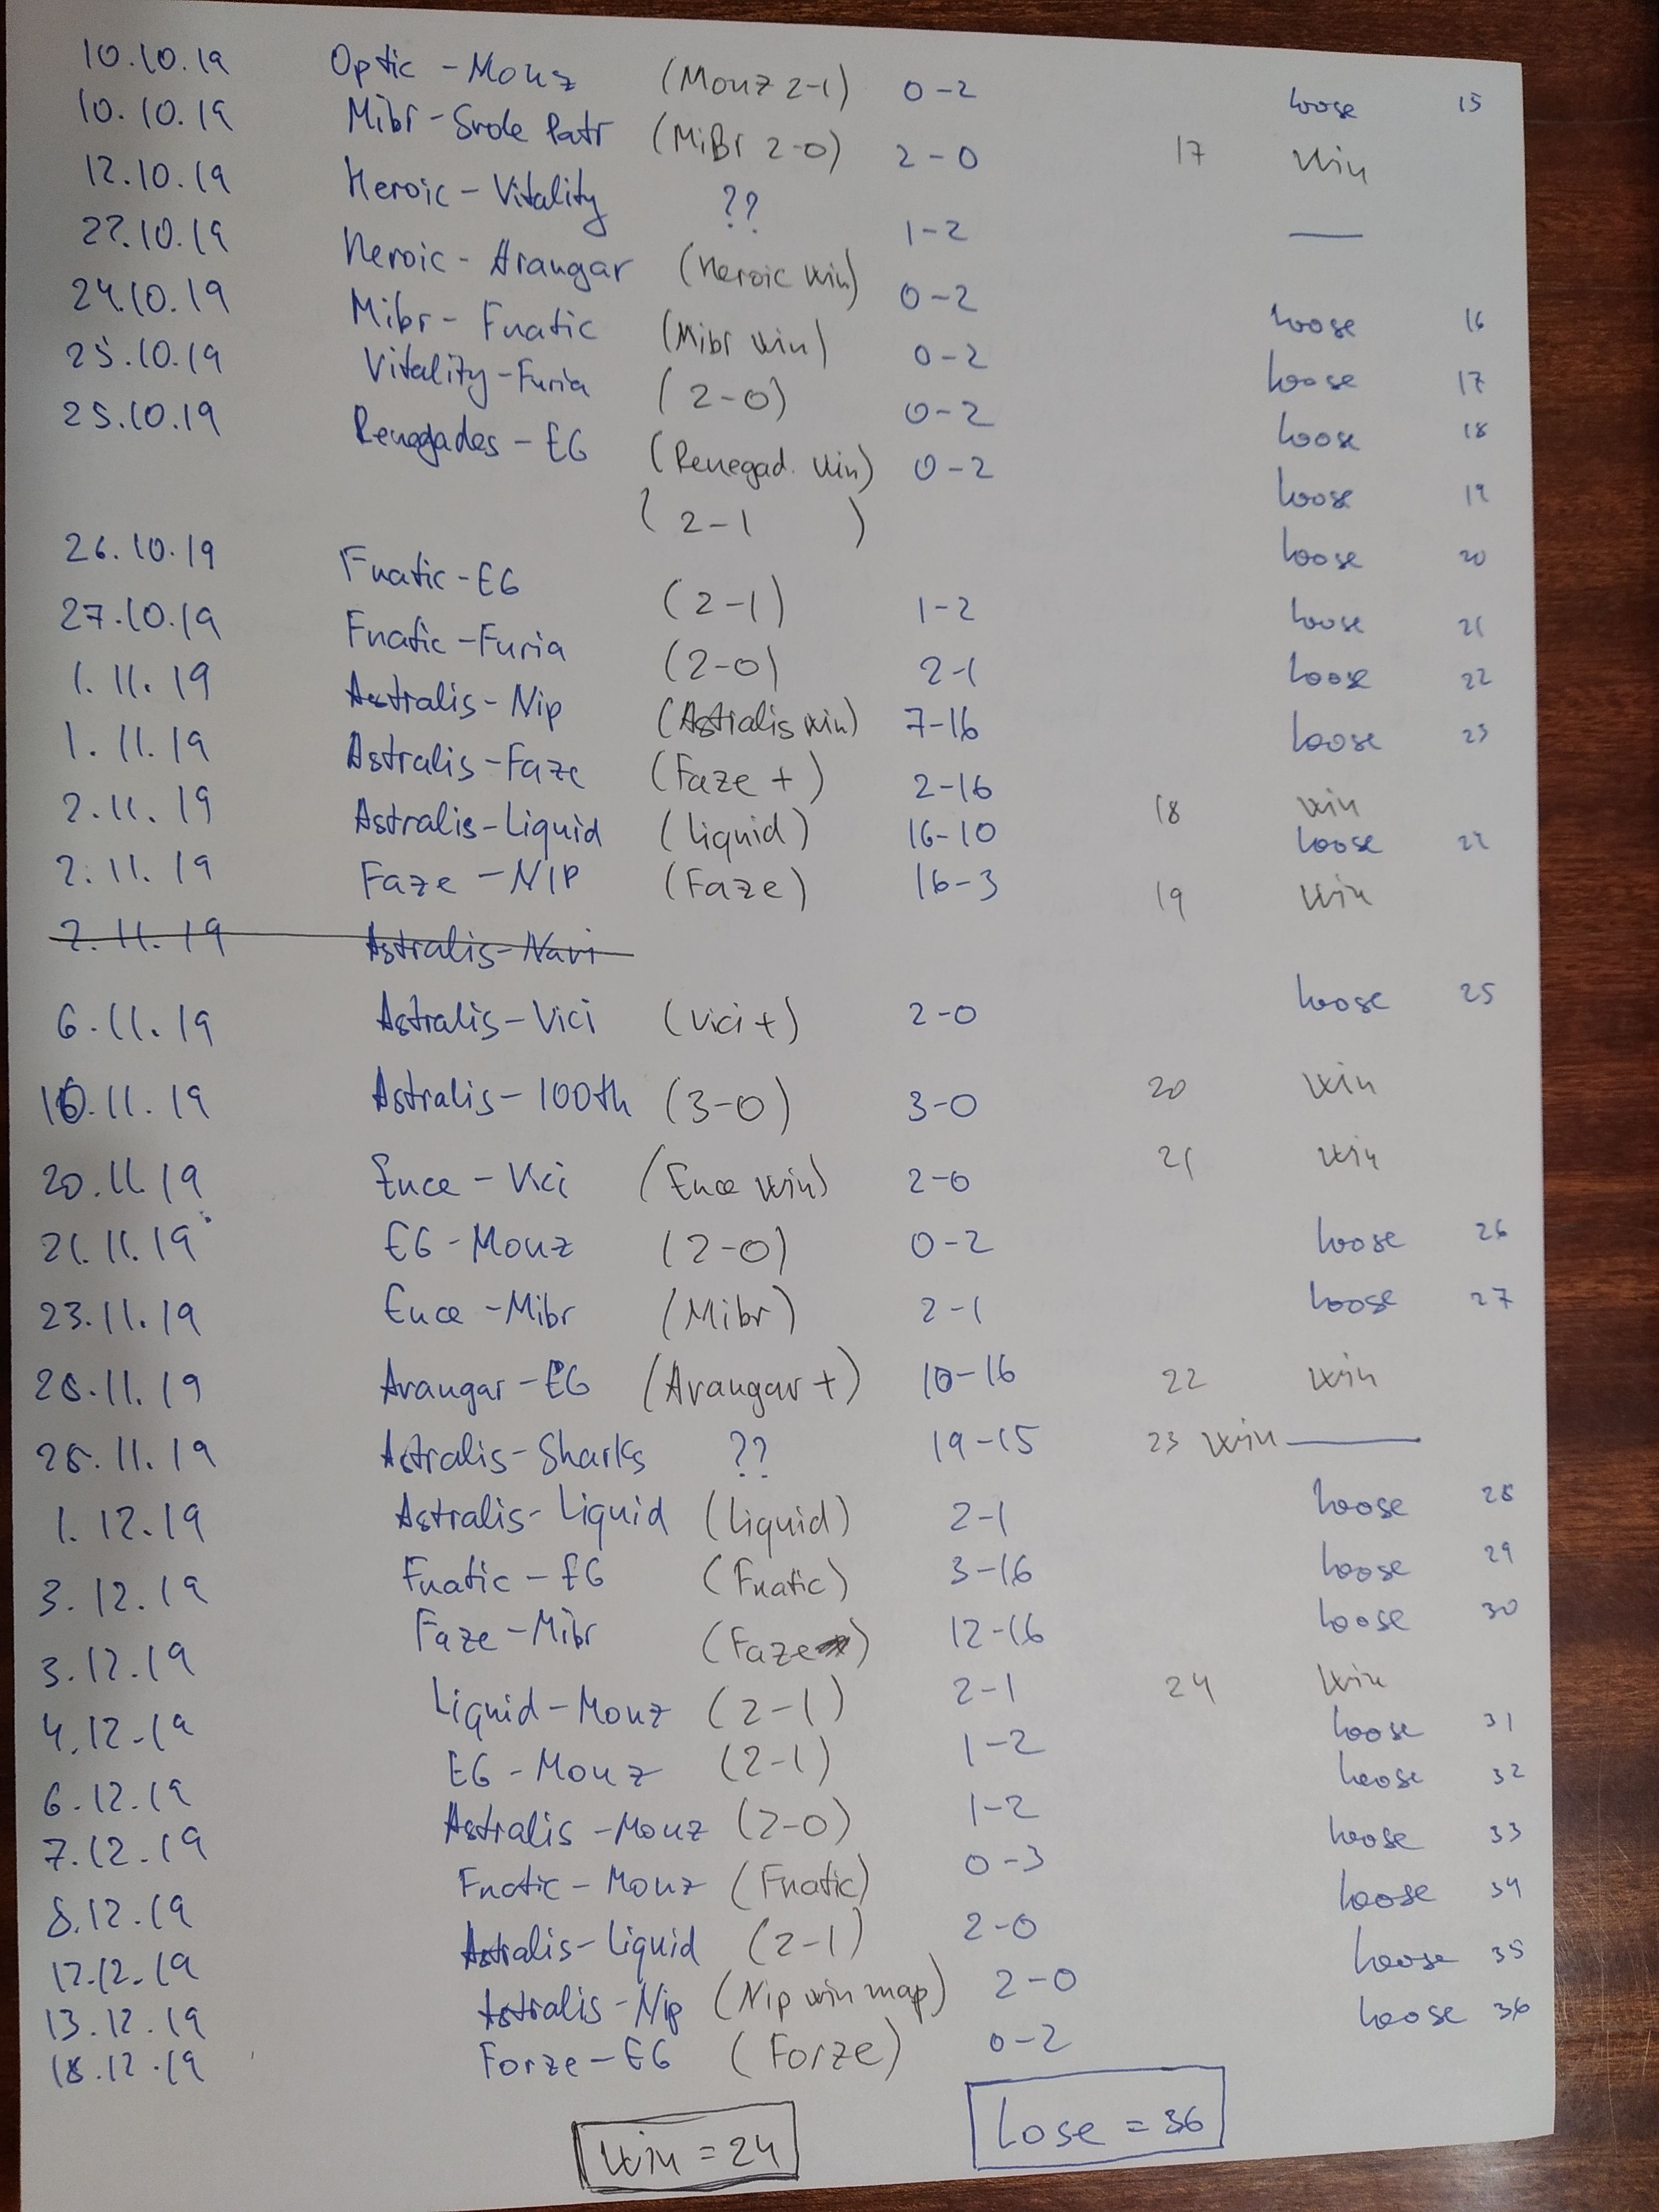 10.10.19 Optic - Mouz (Mouz 2-1) 0-2 loose 15
10.10.19 Mibr - Srole Patr (MiBr 2-0) 2-0 17 win
12.10.19 Heroic - Vitality ?? 1-2 —
22.10.19 Heroic - Avangar (Heroic win) 0-2 loose 16
24.10.19 Mibr - Fnatic (Mibr win) 0-2 loose 17
25.10.19 Vitality - Furia (2-0) 0-2 loose 18
25.10.19 Renegades - EG (Renegad. win) 0-2 loose 19
(2-1) loose 20
26.10.19 Fnatic - EG (2-1) 1-2 loose 21
27.10.19 Fnatic - Furia (2-0) 2-1 loose 22
1.11.19 Astralis - Nip (Astralis win) 7-16 loose 23
1.11.19 Astralis - Faze (Faze +) 2-16 18 win
2.11.19 Astralis - Liquid (Liquid) 16-10 loose
2.11.19 Faze - NIP (Faze) 16-3 19 win
2.11.19 Astralis - Navi
6.11.19 Astralis - Vici (Vici +) 2-0 loose 25
10.11.19 Astralis - 100th (3-0) 3-0 20 win
20.11.19 Ence - Vici (Ence win) 2-0 21 win
21.11.19 EG - Mouz (2-0) 0-2 loose 26
23.11.19 Ence - Mibr (Mibr) 2-1 loose 27
28.11.19 Avangar - EG (Avangar +) 10-16 22 win
28.11.19 Astralis - Sharks ?? 19-15 23 win —
1.12.19 Astralis - Liquid (Liquid) 2-1 loose 28
3.12.19 Fnatic - EG (Fnatic) 3-16 loose 29
3.12.19 Faze - Mibr (Faze) 12-16 loose 30
4.12.19 Liquid - Mouz (2-1) 2-1 24 win
6.12.19 EG - Mouz (2-1) 1-2 loose 31
7.12.19 Astralis - Mouz (2-0) 1-2 loose 32
8.12.19 Fnatic - Mouz (Fnatic) 0-3 loose 33
12.12.19 Astralis - Liquid (2-1) 2-0 loose 34
13.12.19 Astralis - Nip (Nip win map) 2-0 loose 35
18.12.19 Forze - EG (Forze) 0-2 loose 36
Win = 24 Lose = 36